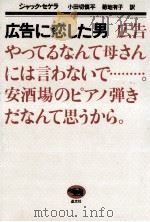 ジャック・セゲラ 小田切慎平 菊地有子 訳
広告に恋した男
広告
やってるなんて母さん
には言わないで………。
安酒場のピアノ弾き
だなんて思うから。
晶文社